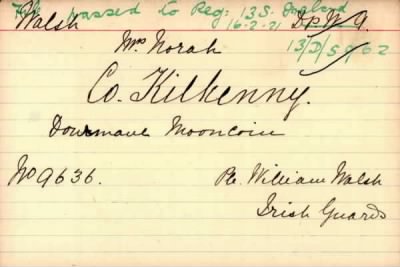 File passed to Reg: 13 S. Ireland
Walsh 16-2-21 Dp W 9.
Mrs Norah 13/D/5962
Co. Kilkenny.
Dournane Mooncoin
No 9636. Pte. William Walsh
Irish Guards